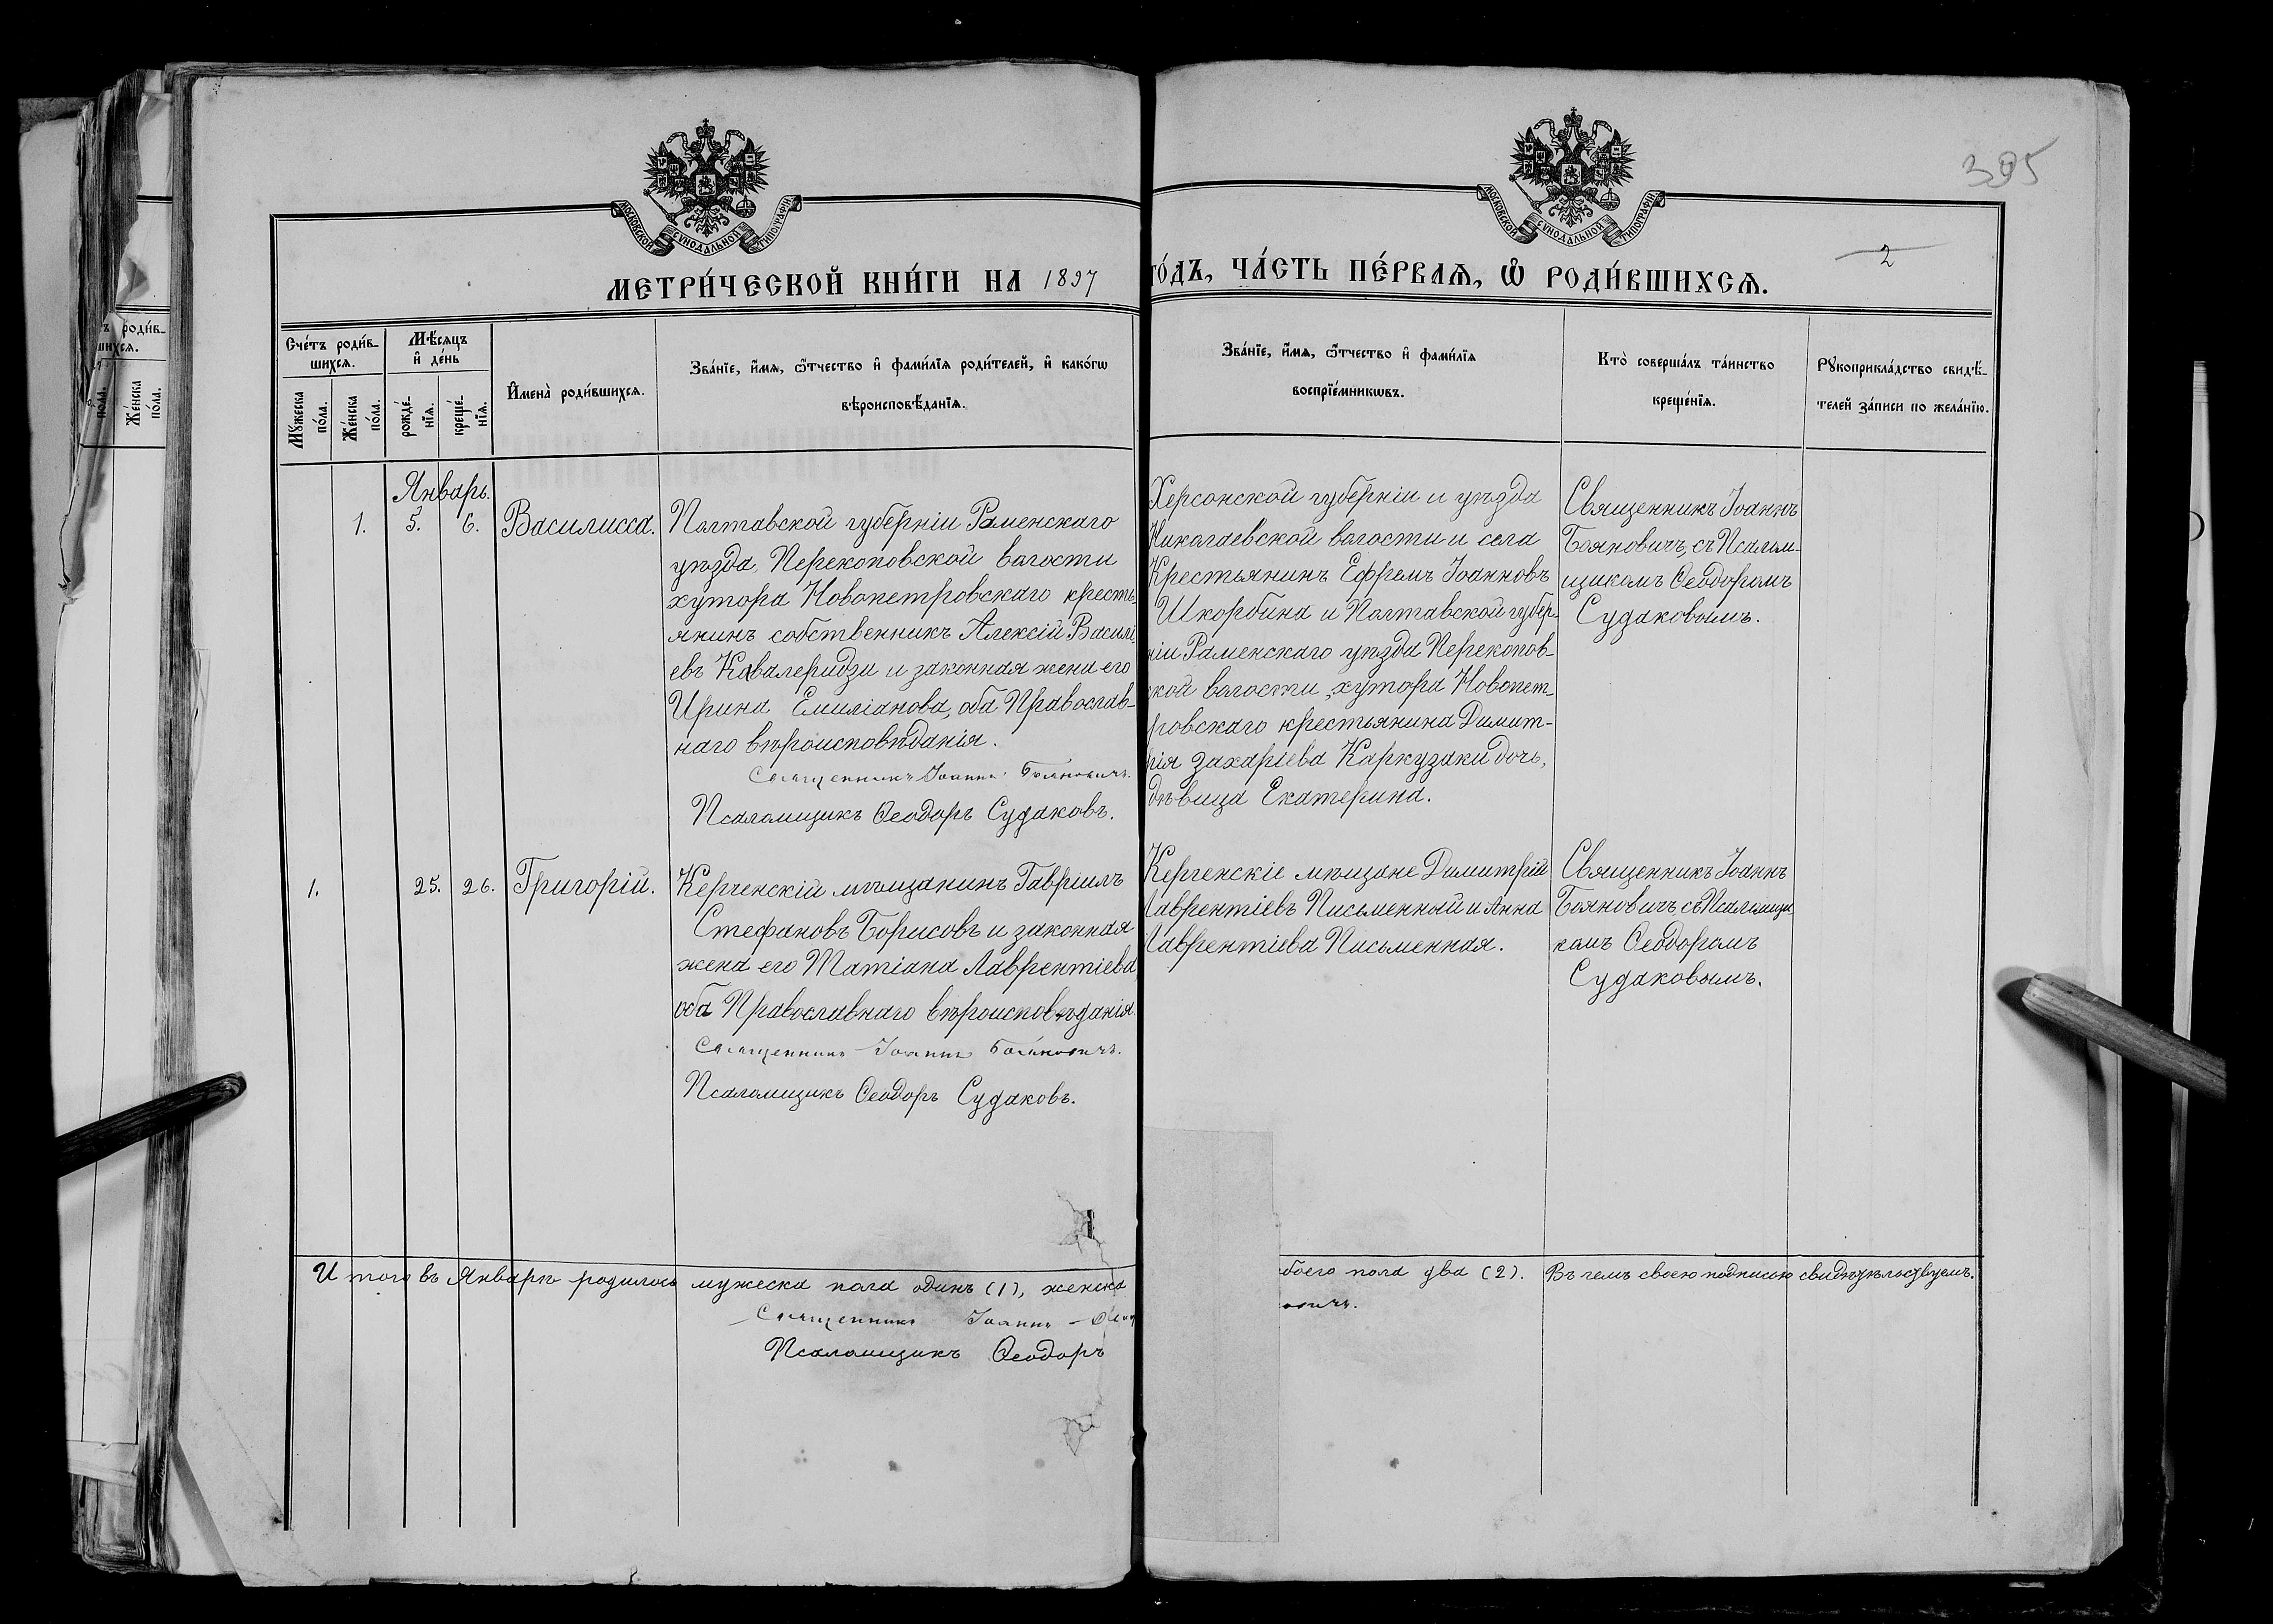 395
МОСКОВСКОЙ СѴНОДАЛЬНОЙ ТИПОГРАФІИ
МОСКОВСКОЙ СѴНОДАЛЬНОЙ ТИПОГРАФІИ
2
МЕТРИ́ЧЕСКОЙ КНИ́ГИ НА 1897
ГО́ДЪ, ЧА́СТЬ ПЕ́РВАѦ, Ѽ РОДИ́ВШИХСѦ.
Сче́тъ роди́в-
шихсѧ.
Му́жеска
по́ла.
Же́нска
по́ла.
Мѣ́сѧцъ
и҆ де́нь
рожде́-
нїѧ.
креще́-
нїѧ.
И҆мена̀ роди́вшихсѧ.
Зва́нїе, и҆́мѧ, ѻ҆́тчество и҆ фами́лїѧ роди́телей, и҆ како́гѡ
вѣроисповѣ́данїѧ.
Зва́нїе, и҆́мѧ, ѻ҆́тчество и҆ фами́лїѧ
воспрїе́мникѡвъ.
Кто̀ соверша́лъ та́инство
креще́нїѧ.
Рꙋкоприкла́дство свидѣ́-
телей за́писи по жела́нїю.
Январь.
1. 5. 6. Василисса.
Полтавской губерніи Раменскаго
уѣзда, Перекоповской волости
хутора Новопетровскаго кресть
янинъ собственникъ Алексій Василі
евъ Ковалеридзи и законная жена его
Ирина Емиліанова, оба Православ-
наго вѣроисповѣданія.
Священникъ Іоаннъ Бояновичъ.
Псаломщикъ Ѳеодоръ Судаковъ.
Херсонской губерніи и уѣзда
Николаевской волости и села
Крестьянинъ Ефремъ Іоанновъ
Шкорбина и Полтавской губер-
ніи Раменскаго уѣзда Перекопов-
ской волости, хутора Новопет-
ровскаго крестьянина Димит-
рія Захаріева Каркузаки дочь,
дѣвица Екатерина.
Священникъ Іоаннъ
Бояновичъ, съ Псалом-
щикомъ Ѳеодоромъ
Судаковымъ.
1. 25. 26. Григорій.
Керченскій мѣщанинъ Гавріилъ
Стефановъ Борисовъ и законная
жена его Татіана Лаврентіева
оба Православнаго вѣроисповѣданія.
Священникъ Іоаннъ Бояновичъ.
Псаломщикъ Ѳеодоръ Судаковъ.
Керченскіе мѣщане Димитрій
Лаврентіевъ Письменный и Анна
Лаврентіева Письменная.
Священникъ Іоаннъ
Бояновичъ, съ Псаломщи
комъ Ѳеодоромъ
Судаковымъ.
Итого въ Январѣ родилось мужеска пола одинъ (1), женска
боего пола два (2). Въ чемъ своею подписью свидѣтельствуемъ.
Священникъ Іоаннъ
овичъ.
Псаломщикъ Ѳеодоръ